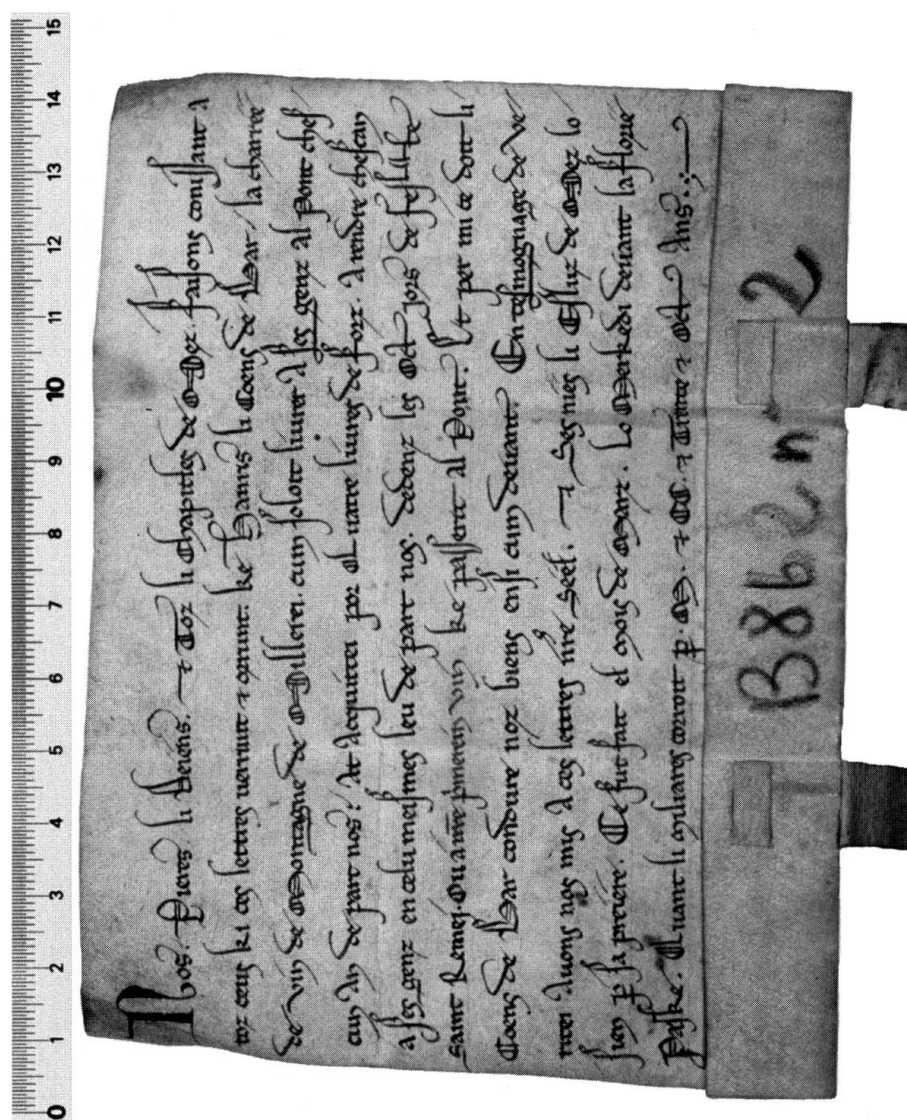 Nos. Pieres. li Deiens. ⁊ Toz li Chapitles de Mez. faisons conissant a
toz ceus ki ces lettres verrunt ⁊ orrunt. ke Hanris li Coens de Bar. la charree
de vin de Montagne de Milleri. cum soloit livrer a ses genz al Pont chas
cun an de part nos. at acquitei por C. livres de forz. a rendre chascun
a ses genz en celu meismes leu de part nos. dedenz les oct jors de feste
saint Remei. ou a me pmerein vin ke passerat al Pont. Et per mi ce doit li
Coens de Bar conduire noz biens ensi cum devant. En tesmognage de ve
ritei avons nos mis a ces lettres nre seel. ⁊ Jemes li Esliz de Mez lo
sien p sa preiere. Ce fut fait el mois de Marz. lo Merkedi devant la florie
Paske. Quant li miliaires corroit p. M. ⁊ CC. ⁊ Trente ⁊ oct Ans.
B862 n° 2
0 1 2 3 4 5 6 7 8 9 10 11 12 13 14 15